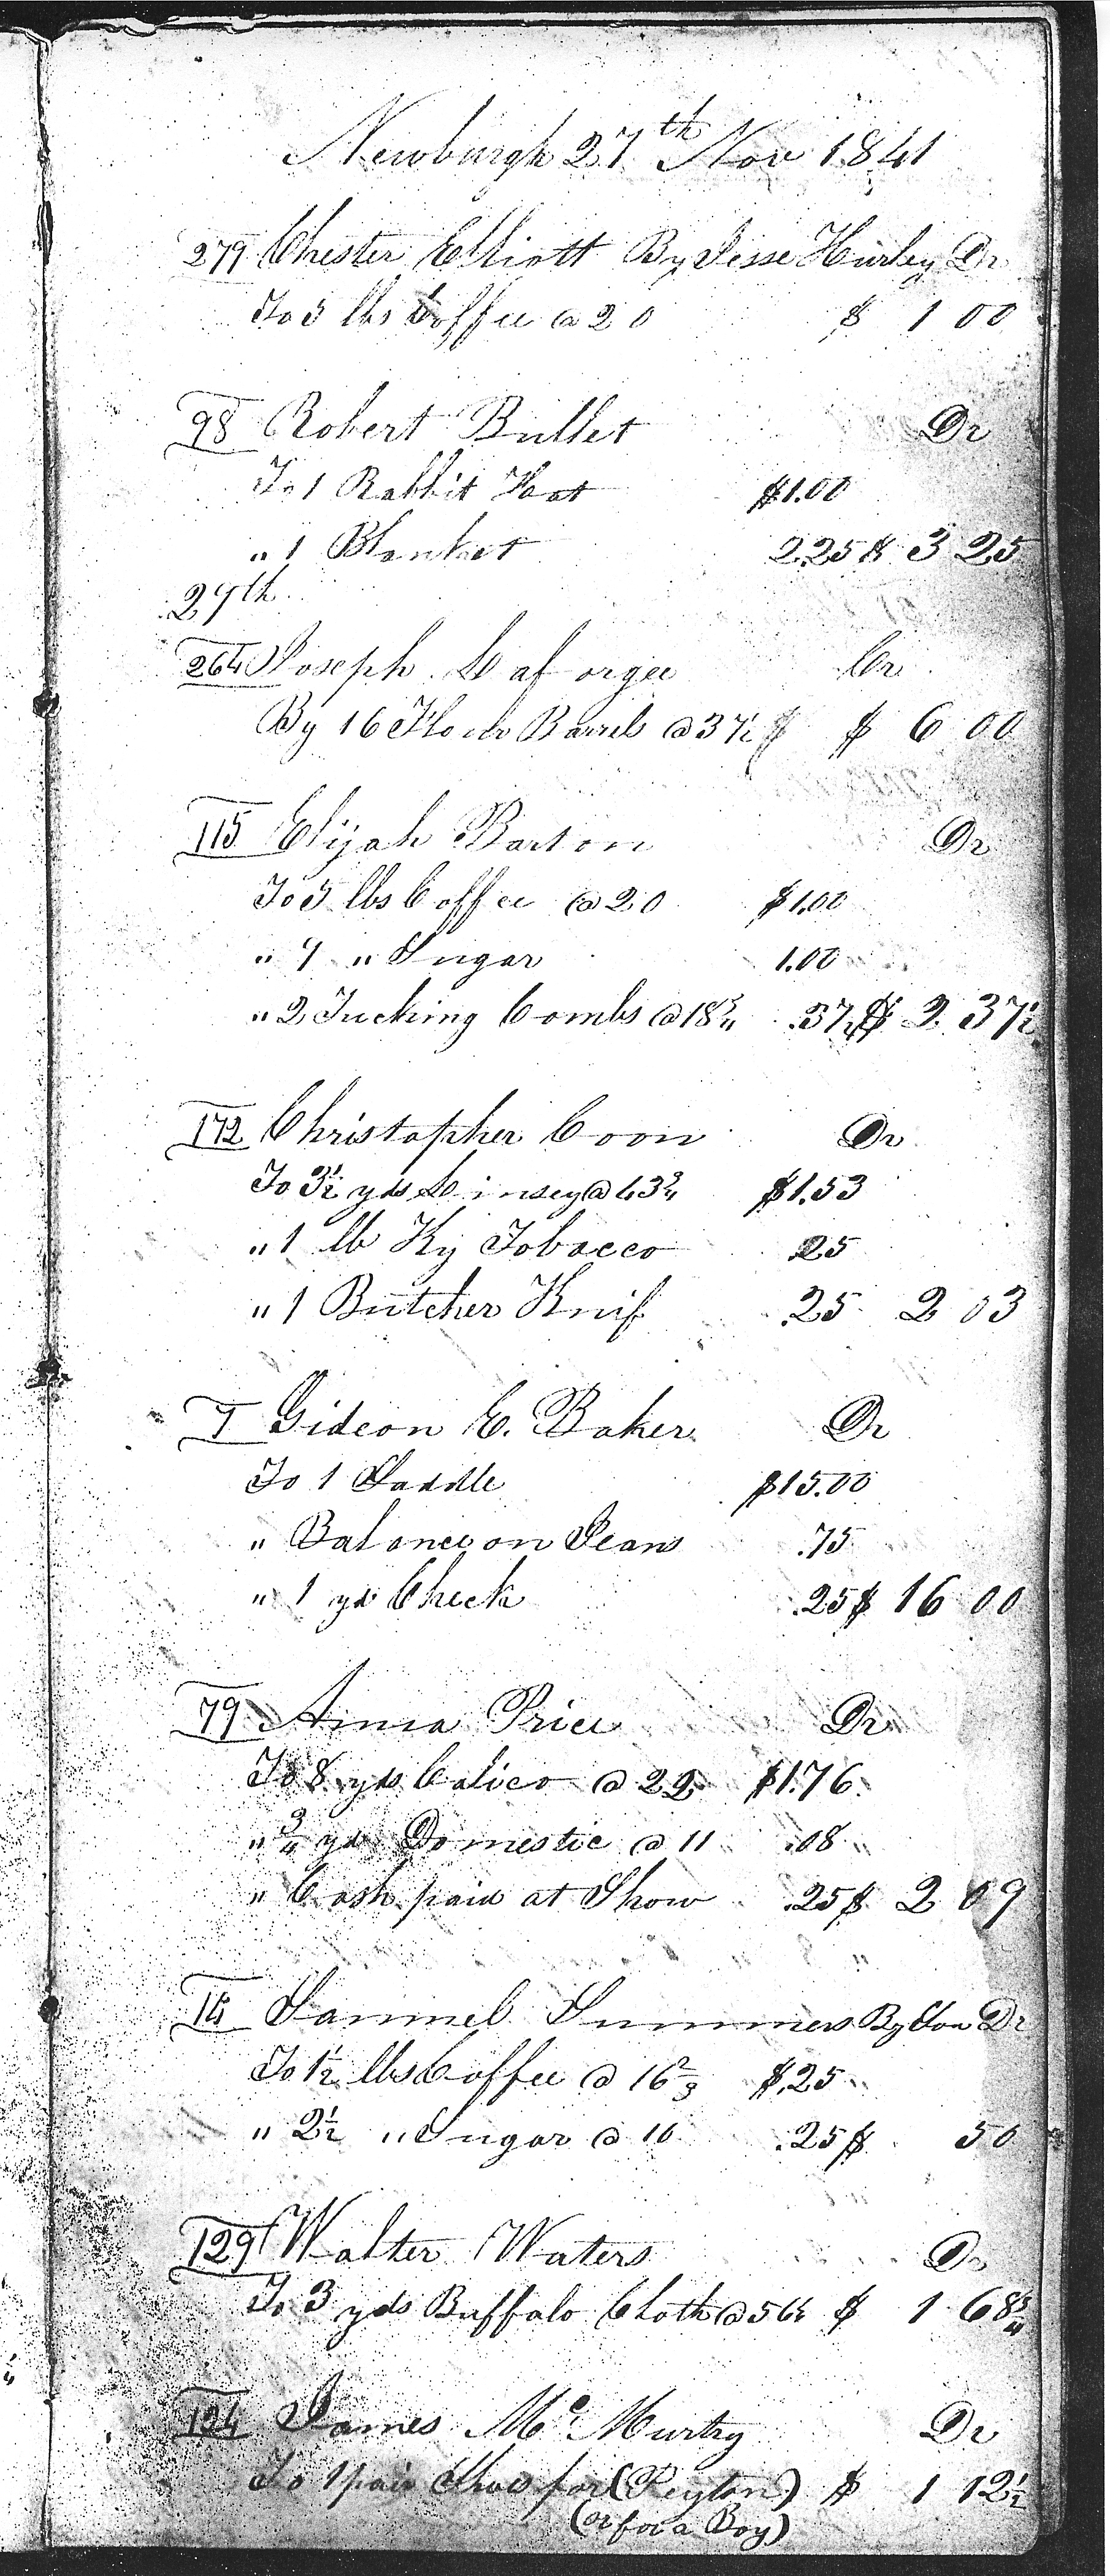 Newburgh 27th Nov 1841
279 Chester Elliott By Jesse Hurley Dr
To 5 lbs Coffee @ 20 $ 1 00
98 Robert Bullet Dr
To 1 Rabbit Hat $1.00
" 1 Blanket 2.25 $ 3 25
29th
264 Joseph Laforgee Cr
By 16 Flour Barrels @ 37½ $ 6 00
115 Elijah Barton Dr
To 5 lbs Coffee @ 20 $1.00
" 9 " Sugar 1.00
" 2 Tucking Combs @ 18¾ .37½ $ 2 37½
172 Christopher Coon Dr
To 3½ yds Linsey @ 43¾ $1.53
" 1 lb Ky Tobacco .25
" 1 Butcher Knif .25 2 03
7 Gideon E. Baker Dr
To 1 Saddle $15.00
" Balance on Jeans .75
" 1 yd Check .25 $ 16 00
79 Price Dr
To 8 yds Calico @ 22 $1.76
" ¾ yd Domestic @ 11 .08
" Cash paid at Show .25 $ 2 09
14 Samuel Summers By Son Dr
To 1½ lbs Coffee @ 16⅔ $.25
" 2½ " Sugar @ 10 .25 $ 50
129 Walter Waters Dr
To 3 yds Buffalo Cloth @ 56¼ $ 1 68¾
124 James Mc Murtry Dr
To 1 pair Shoes for (Peyton) $ 1 12½
(or for a Boy)